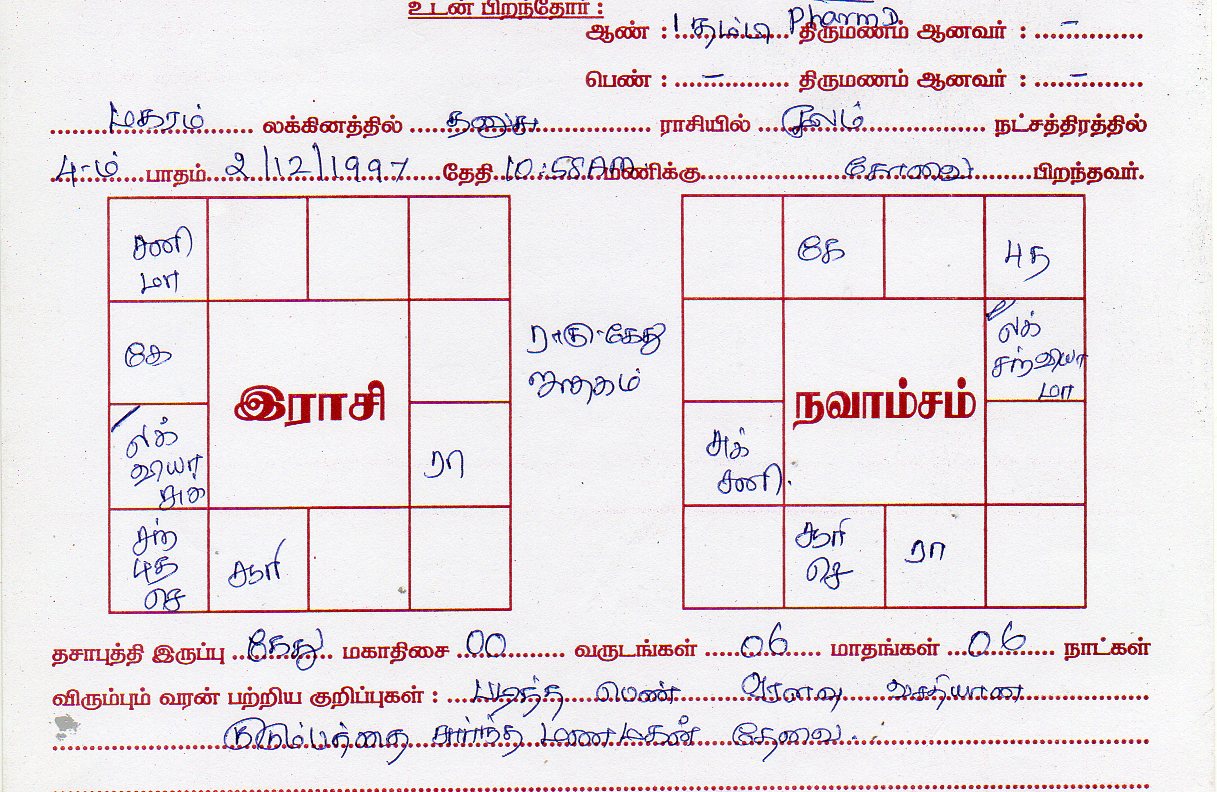 உடன் பிறந்தோர் :
ஆண் : 1 தம்பி Pharm D திருமணம் ஆனவர் : –
பெண் : – திருமணம் ஆனவர் : –
மகரம் லக்கினத்தில் தனுசு ராசியில் மூலம் நட்சத்திரத்தில்
4-ம் பாதம் 2/12/1997 தேதி 10:58AM மணிக்கு கோவை பிறந்தவர்.
சனி
மா
கே
லக்
வியா
சுக்
ரா
சந்
புத
செ
சூரி
இராசி
ராகு-கேது
ஜாதகம்
கே
புத
லக்
சந் வியா
மா
சுக்
சனி
சூரி
செ
ரா
நவாம்சம்
தசாபுத்தி இருப்பு கேது மகாதிசை 00 வருடங்கள் 06 மாதங்கள் 06 நாட்கள்
விரும்பும் வரன் பற்றிய குறிப்புகள் : படித்த பெண் ஓரளவு வசதியான
குடும்பத்தை சார்ந்த மணமகன் தேவை.